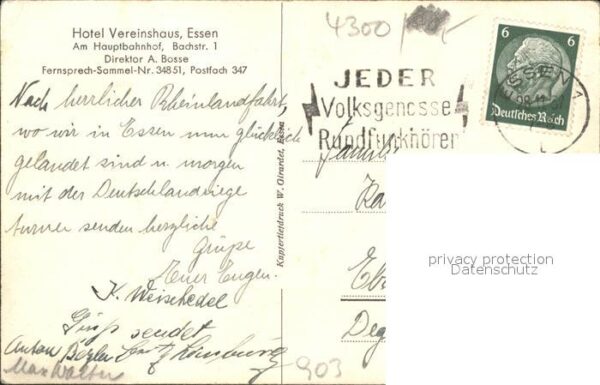 Hotel Vereinshaus, Essen
Am Hauptbahnhof, Bachstr. 1
Direktor A. Bosse
Fernsprech-Sammel-Nr. 34851, Postfach 347
Nach herrlicher Rheinlandfahrt,
wo wir in Essen nun glücklich
gelandet sind u. morgen
mit der Deutschlandriege
turnen senden herzliche
Grüße
Euer Eugen.
K. Weischedel
Gruß sendet
Anton
Max Walter
Kupfertiefdruck W. Girardet, Essen
4300
JEDER
Volksgenosse
Rundfunkhörer
6 6
ESSEN 1
Deutsches Reich
Familie
Ka
Eb
Deg
903
privacy protection
Datenschutz